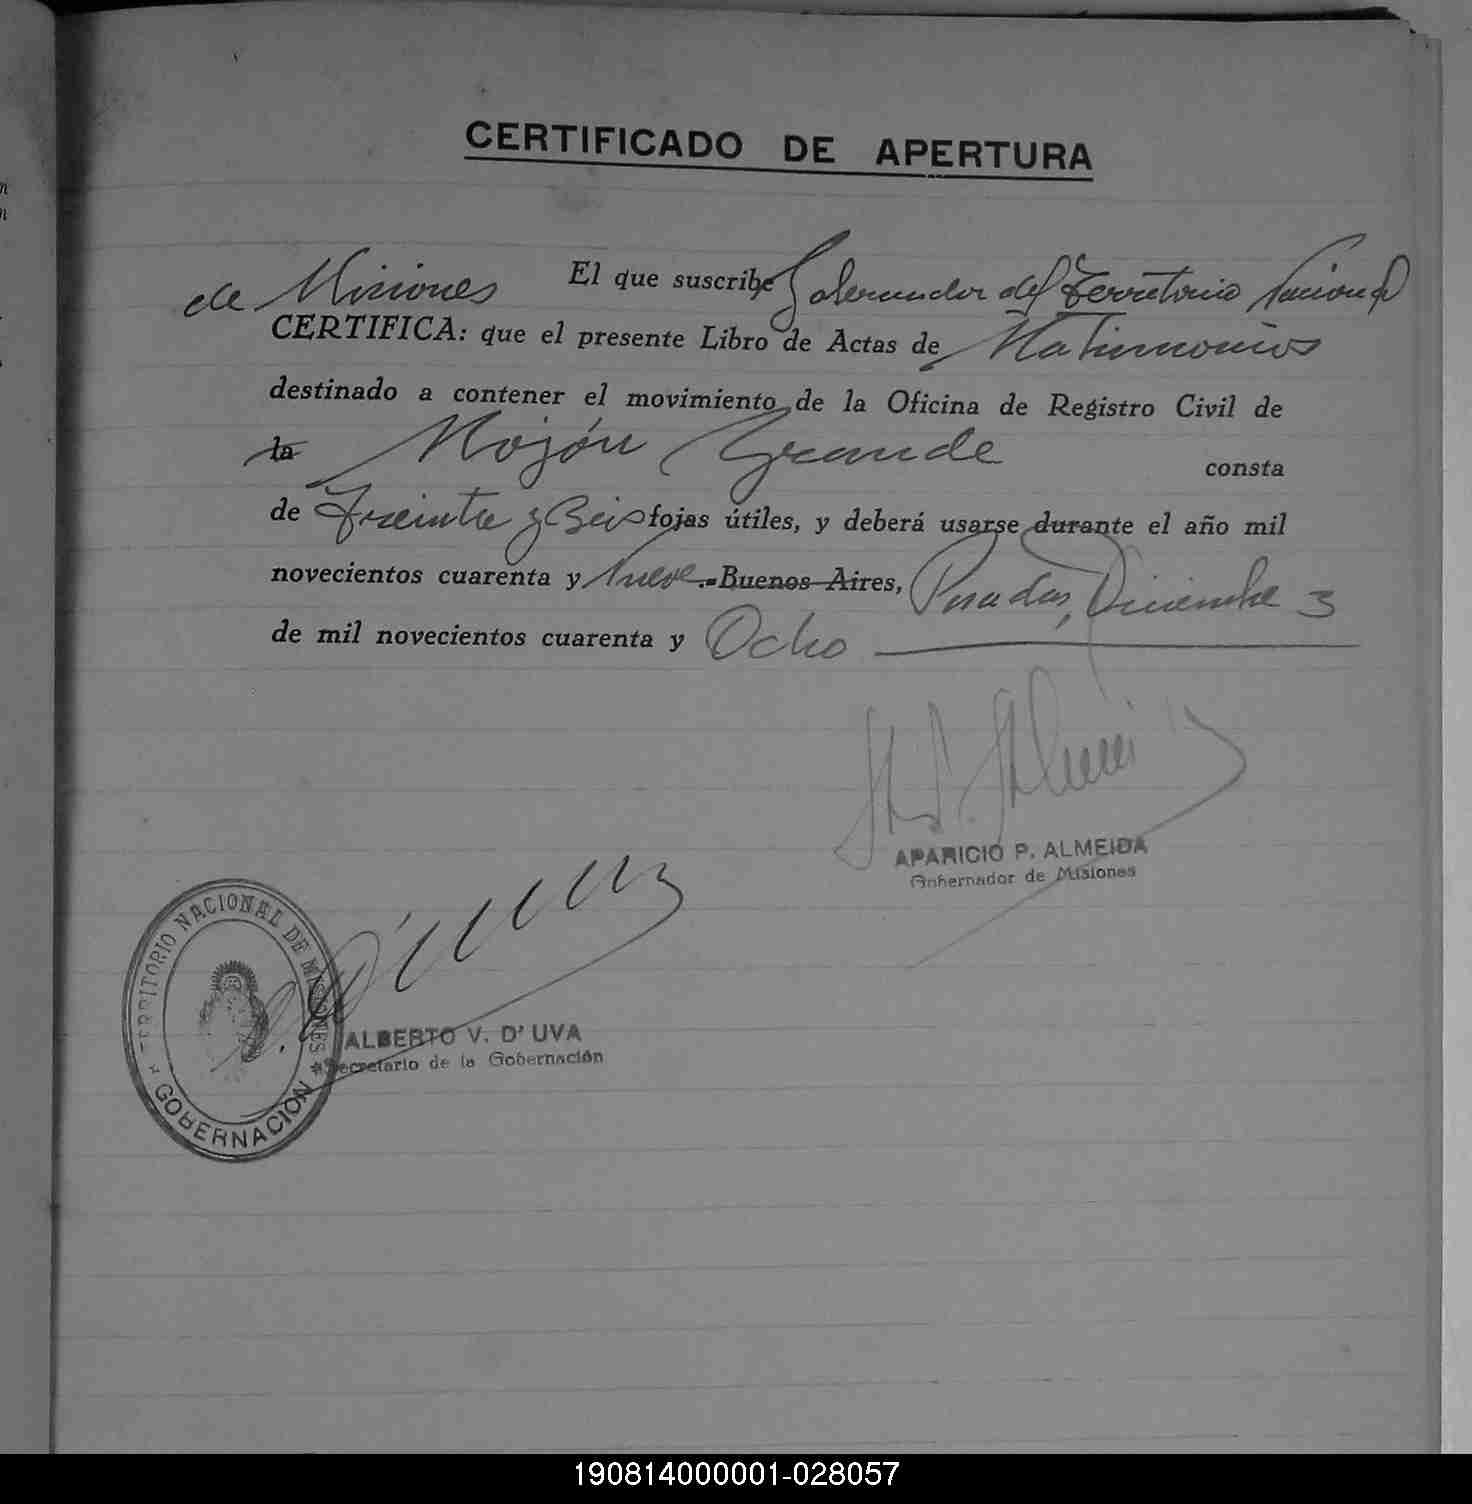 CERTIFICADO DE APERTURA
El que suscribe Gobernador del Territorio Nacional
de Misiones
CERTIFICA: que el presente Libro de Actas de Matrimonios
destinado a contener el movimiento de la Oficina de Registro Civil de
la Mojón Grande consta
de Treinta y Seis fojas útiles, y deberá usarse durante el año mil
novecientos cuarenta y Nueve.-Buenos Aires, Posadas, Diciembre 3
de mil novecientos cuarenta y Ocho
APARICIO P. ALMEIDA
Gobernador de Misiones
TERRITORIO NACIONAL DE MISIONES
GOBERNACION
ALBERTO V. D'UVA
Secretario de la Gobernación
190814000001-028057